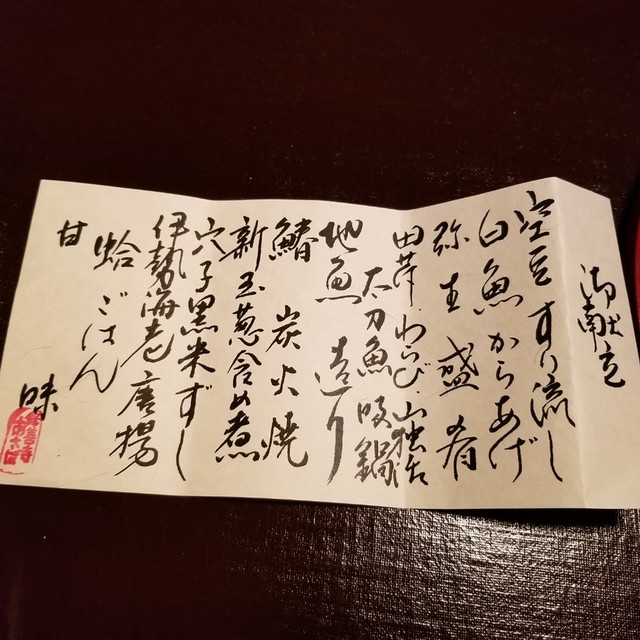 御献立
空豆すり流し
白魚からあげ
弥生盛肴
田芹・わらび・山独活
太刀魚吸鍋
地魚造り
鰆炭火焼
新玉葱含め煮
穴子黒米ずし
伊勢海老唐揚
蛤ごはん
甘味